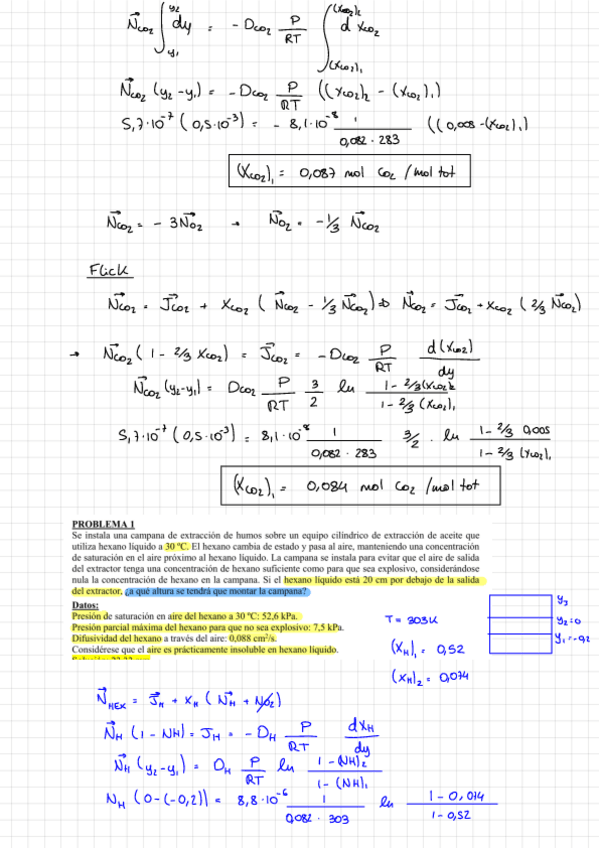 N⃗CO2 ∫y1^y2 dy = - DCO2 P/RT ∫(XCO2)1^(XCO2)2 d XCO2
N⃗CO2 (y2-y1) = -DCO2 P/RT ((XCO2)2 - (XCO2)1)
5,7·10^-7 (0,5·10^-3) = - 8,1·10^-8 1/(0,082·283) ((0,008-(XCO2)1)
(XCO2)1 = 0,087 mol CO2/mol tot
N⃗CO2 = - 3N⃗O2 → N⃗O2 = -1/3 N⃗CO2
Flick
N⃗CO2 = J⃗CO2 + XCO2 (N⃗CO2 - 1/3 N⃗CO2) ⇒ N⃗CO2 = J⃗CO2 + XCO2 (2/3 N⃗CO2)
→ N⃗CO2 (1 - 2/3 XCO2) = J⃗CO2 = -DCO2 P/RT d(XCO2)/dy
N⃗CO2 (y2-y1) = DCO2 P/RT 3/2 ln (1-2/3(XCO2)2)/(1-2/3(XCO2)1)
5,7·10^-7 (0,5·10^-3) = 8,1·10^-8 1/(0,082·283) 3/2 · ln (1-2/3 0,005)/(1-2/3 (XCO2)1)
(XCO2)1 = 0,084 mol CO2/mol tot
PROBLEMA 1
Se instala una campana de extracción de humos sobre un equipo cilíndrico de extracción de aceite que
utiliza hexano líquido a 30 ºC. El hexano cambia de estado y pasa al aire, manteniendo una concentración
de saturación en el aire próximo al hexano líquido. La campana se instala para evitar que el aire de salida
del extractor tenga una concentración de hexano suficiente como para que sea explosivo, considerándose
nula la concentración de hexano en la campana. Si el hexano líquido está 20 cm por debajo de la salida
del extractor, ¿a qué altura se tendrá que montar la campana?
Datos:
Presión de saturación en aire del hexano a 30 ºC: 52,6 kPa.
Presión parcial máxima del hexano para que no sea explosivo: 7,5 kPa.
Difusividad del hexano a través del aire: 0,088 cm²/s.
Considérese que el aire es prácticamente insoluble en hexano líquido.
T = 303K
(XH)1 = 0,52
(XH)2 = 0,074
y3
y2=0
y1=-0,2
N⃗HEX = J⃗H + XH (N⃗H + NO2)
N⃗H (1 - NH) = JH = - DH P/RT dXH/dy
N⃗H (y2-y1) = DH P/RT ln (1-(NH)2)/(1-(NH)1)
NH (0-(-0,2)) = 8,8·10^-6 1/(0,082·303) ln (1-0,074)/(1-0,52)